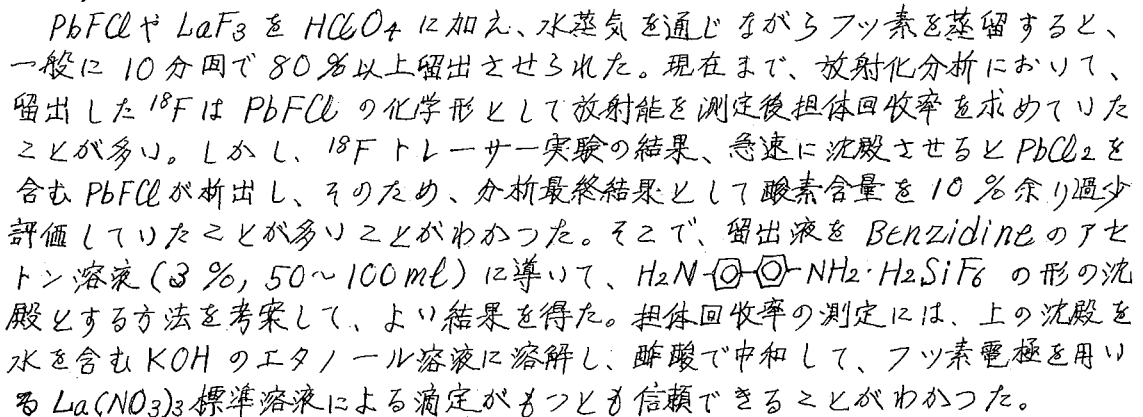 PbFClや LaF3を HClO4 に加え、水蒸気を通じながらフッ素を蒸留すると、
一般に 10分間で 80%以上留出させられた。現在まで、放射化分析において、
留出した 18FはPbFClの化学形として放射能を測定後担体回収率を求めていた
ことが多い。しかし、18Fトレーサー実験の結果、急速に沈殿させるとPbCl2を
含むPbFClが析出し、そのため、分析最終結果として酸素含量を10%余り過少
評価していたことが多いことがわかった。そこで、留出液をBenzidineのアセ
トン溶液(3%, 50~100ml)に導いて、H2N-NH2・H2SiF6 の形の沈
殿とする方法を考案して、よい結果を得た。担体回収率の測定には、上の沈殿を
水を含むKOHのエタノール溶液に溶解し、酢酸で中和して、フッ素電極を用い
るLa(NO3)3標準溶液による滴定がもっとも信頼できることがわかった。